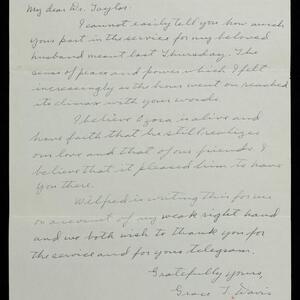 My dear Dr. Taylor:
I cannot easily tell you how much
your part in the service for my beloved
husband meant last Thursday. The
sense of peace and power which I felt
increasingly as the hour went on reached
its climax with your words.
I believe Ozora is alive and
have faith that he still realizes
our love and that of our friends. I
believe that it pleased him to have
you there.
Wilfred is writing this for me
on account of my weak right hand
and we both wish to thank you for
the service and for your telegram.
Gratefully yours,
Grace T. Davis